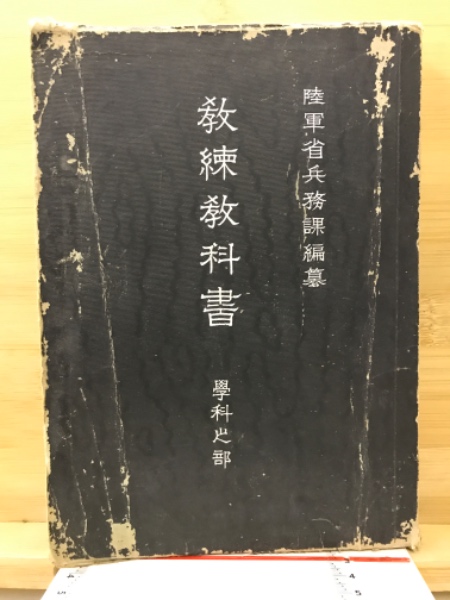 陸軍省兵務課編纂
教練教科書
學科之部
4
5
4
5